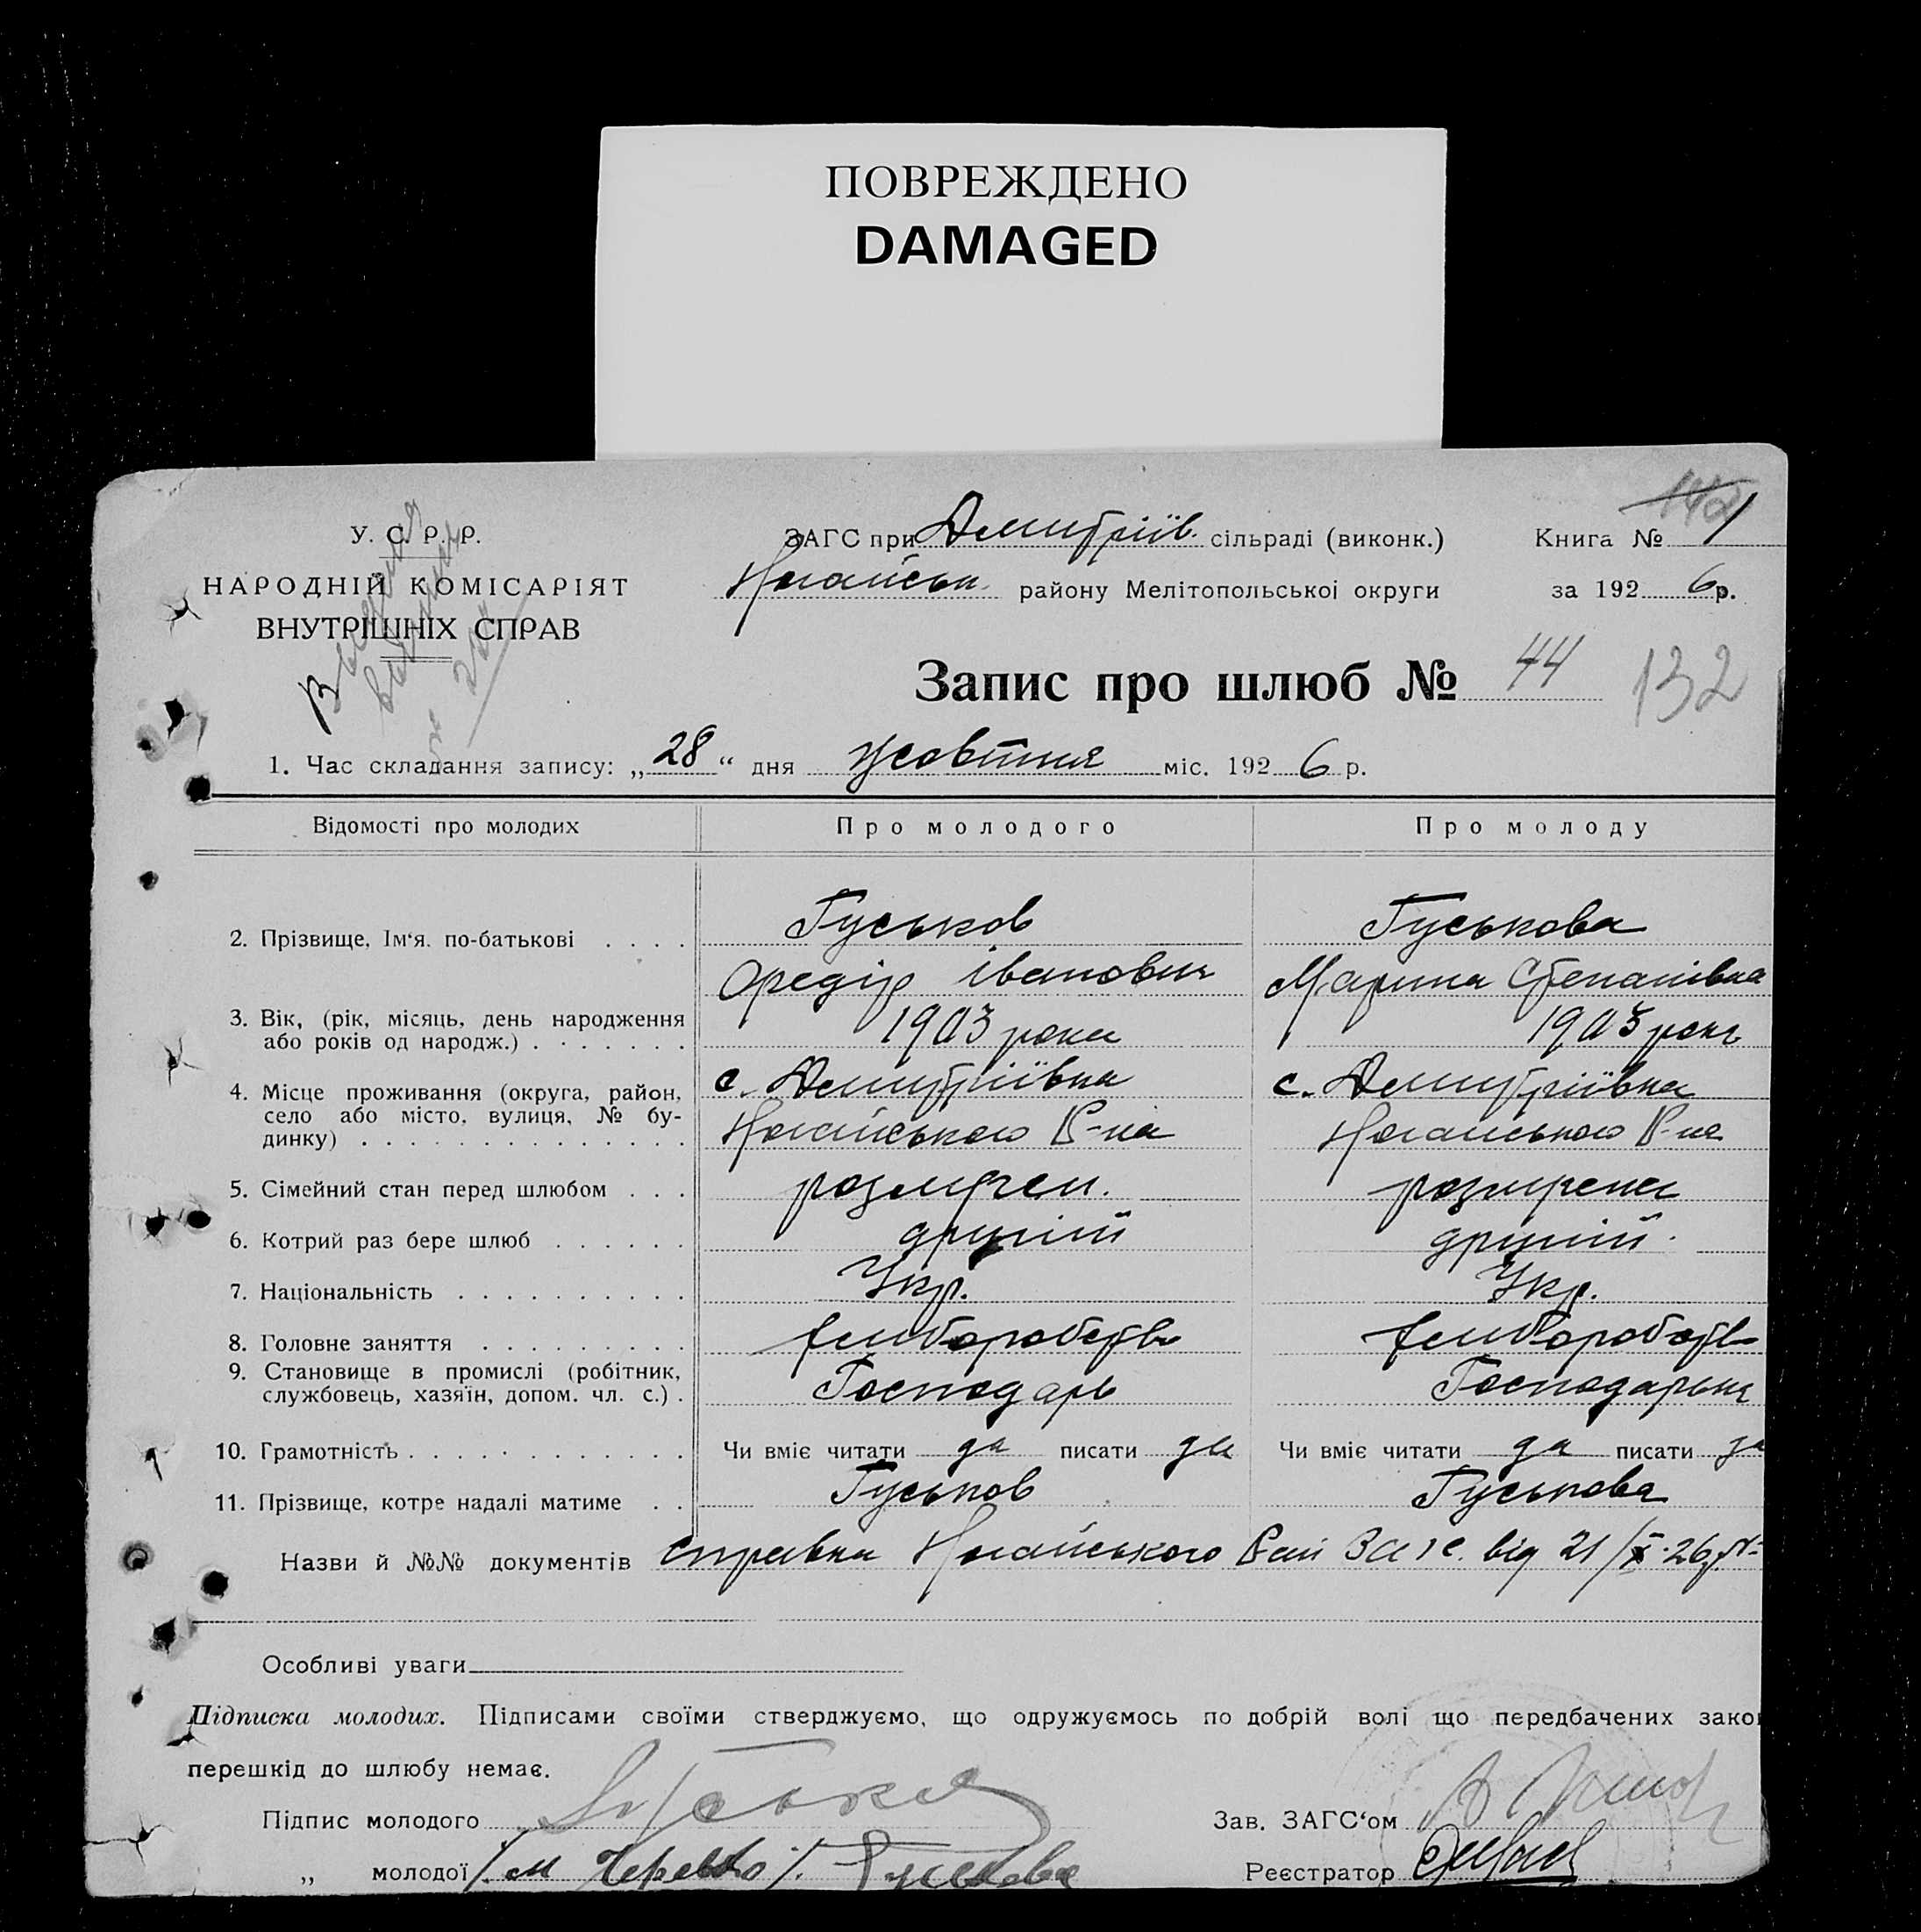 ПОВРЕЖДЕНО
DAMAGED
У. С. Р. Р.
НАРОДНІЙ КОМІСАРІЯТ
ВНУТРІШНІХ СПРАВ
ЗАГС при Дмитріїв. сільраді (виконк.)
Ногайськ. району Мелітопольської округи
142
Книга № 1
за 1926 р.
Запис про шлюб № 44
132
1. Час складання запису: „28“ дня жовтня міс. 1926 р.
Відомості про молодих Про молодого Про молоду
2. Прізвище, Ім‘я, по-батькові . . . . Гуськов Гуськова
Федір Іванович Марина Степанівна
3. Вік, (рік, місяць, день народження 1903 роки 1903 рок
або років од народж.) . . . . . . .
4. Місце проживання (округа, район, с. Дмитріївка с. Дмитріївка
село або місто, вулиця, № бу- Ногайського Р-на Ногайського Р-на
динку) . . . . . . . . . . . . . .
5. Сімейний стан перед шлюбом . . .
6. Котрий раз бере шлюб . . . . . . другий другий.
7. Національність . . . . . . . . . . Укр. Укр.
8. Головне заняття . . . . . . . . .
9. Становище в промислі (робітник, Господарь
службовець, хазяїн, допом. чл. с.) .
10. Грамотність . . . . . . . . . . . . Чи вміє читати да писати да Чи вміє читати да писати да
11. Прізвище, котре надалі матиме . . Гуськов Гуськова
Назви й №№ документів справка Ногайського Рай Загс. від 21/X-26р. №
Особливі уваги
Підписка молодих. Підписами своїми стверджуємо, що одружуємось по добрій волі що передбачених зако
перешкід до шлюбу немає.
Підпис молодого
Зав. ЗАГС‘ом
„ молодої Гуськова
Реєстратор